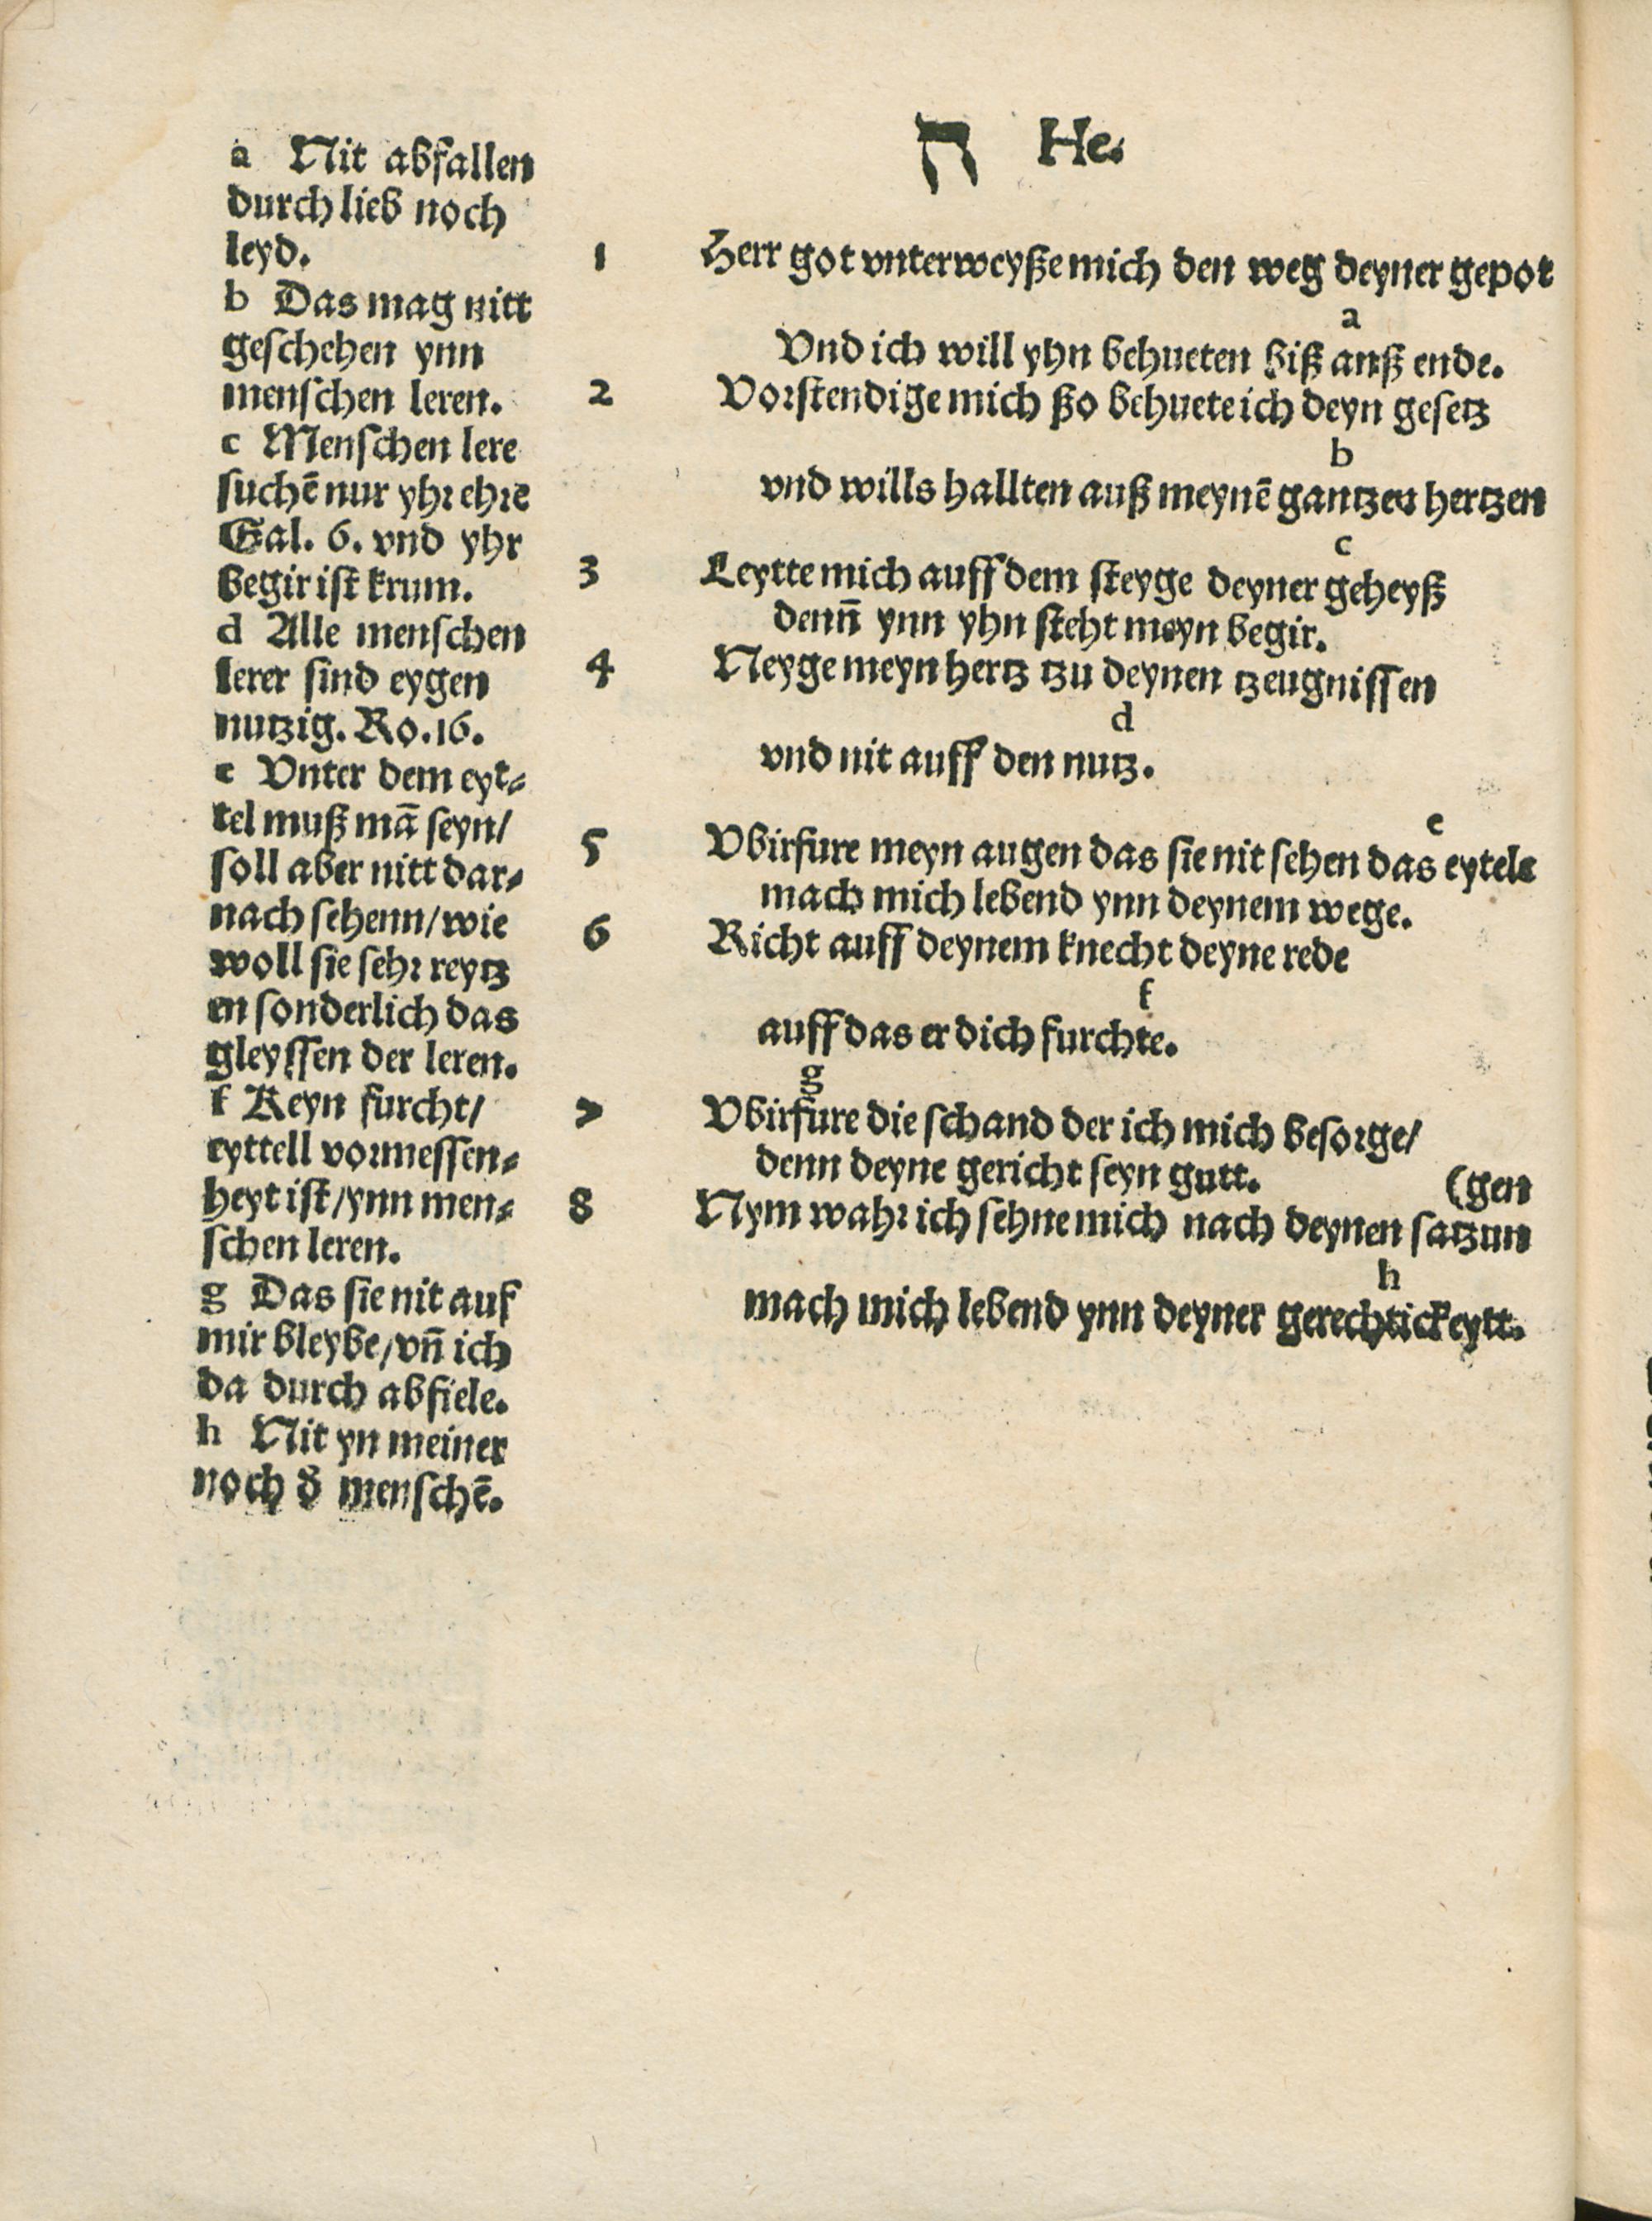 ה He.
a Nit abfallen
durch lieb noch
leyd.
b Das mag nitt
geschehen ynn
menschen leren.
c Menschen lere
suchē nur yhr ehre
Gal. 6. vnd yhr
begir ist krum.
d Alle menschen
lerer sind eygen
nutzig. Ro. 16.
e Vnter dem eyt⸗
tel muß mā seyn/
soll aber nitt dar⸗
nach sehenn/wie
woll sie sehr reytz
en sonderlich das
gleyssen der leren.
f Keyn furcht/
eyttell vormessen⸗
heyt ist/ynn men⸗
schen leren.
g Das sie nit auf
mir bleybe/vn̄ ich
da durch abfiele.
h Nit yn meiner
noch d̕ menschē.
1 Herr got vnterweyße mich den weg deyner gepot
a
Vnd ich will yhn behueten biß anß ende.
2 Vorstendige mich ßo behuete ich deyn gesetz
b
vnd wills hallten auß meynē gantzen hertzen
c
3 Leytte mich auff dem steyge deyner geheyß
denn̄ ynn yhn steht meyn begir.
4 Neyge meyn hertz tzu deynen tzeugnissen
d
vnd nit auff den nutz.
e
5 Vbirfure meyn augen das sie nit sehen das eytele
mach mich lebend ynn deynem wege.
6 Richt auff deynem knecht deyne rede
f
auff das er dich furchte.
g
7 Vbirfure die schand der ich mich besorge/
denn deyne gericht seyn gutt. (gen
8 Nym wahr ich sehne mich nach deynen satzun
h
mach mich lebend ynn deyner gerechtickeytt.